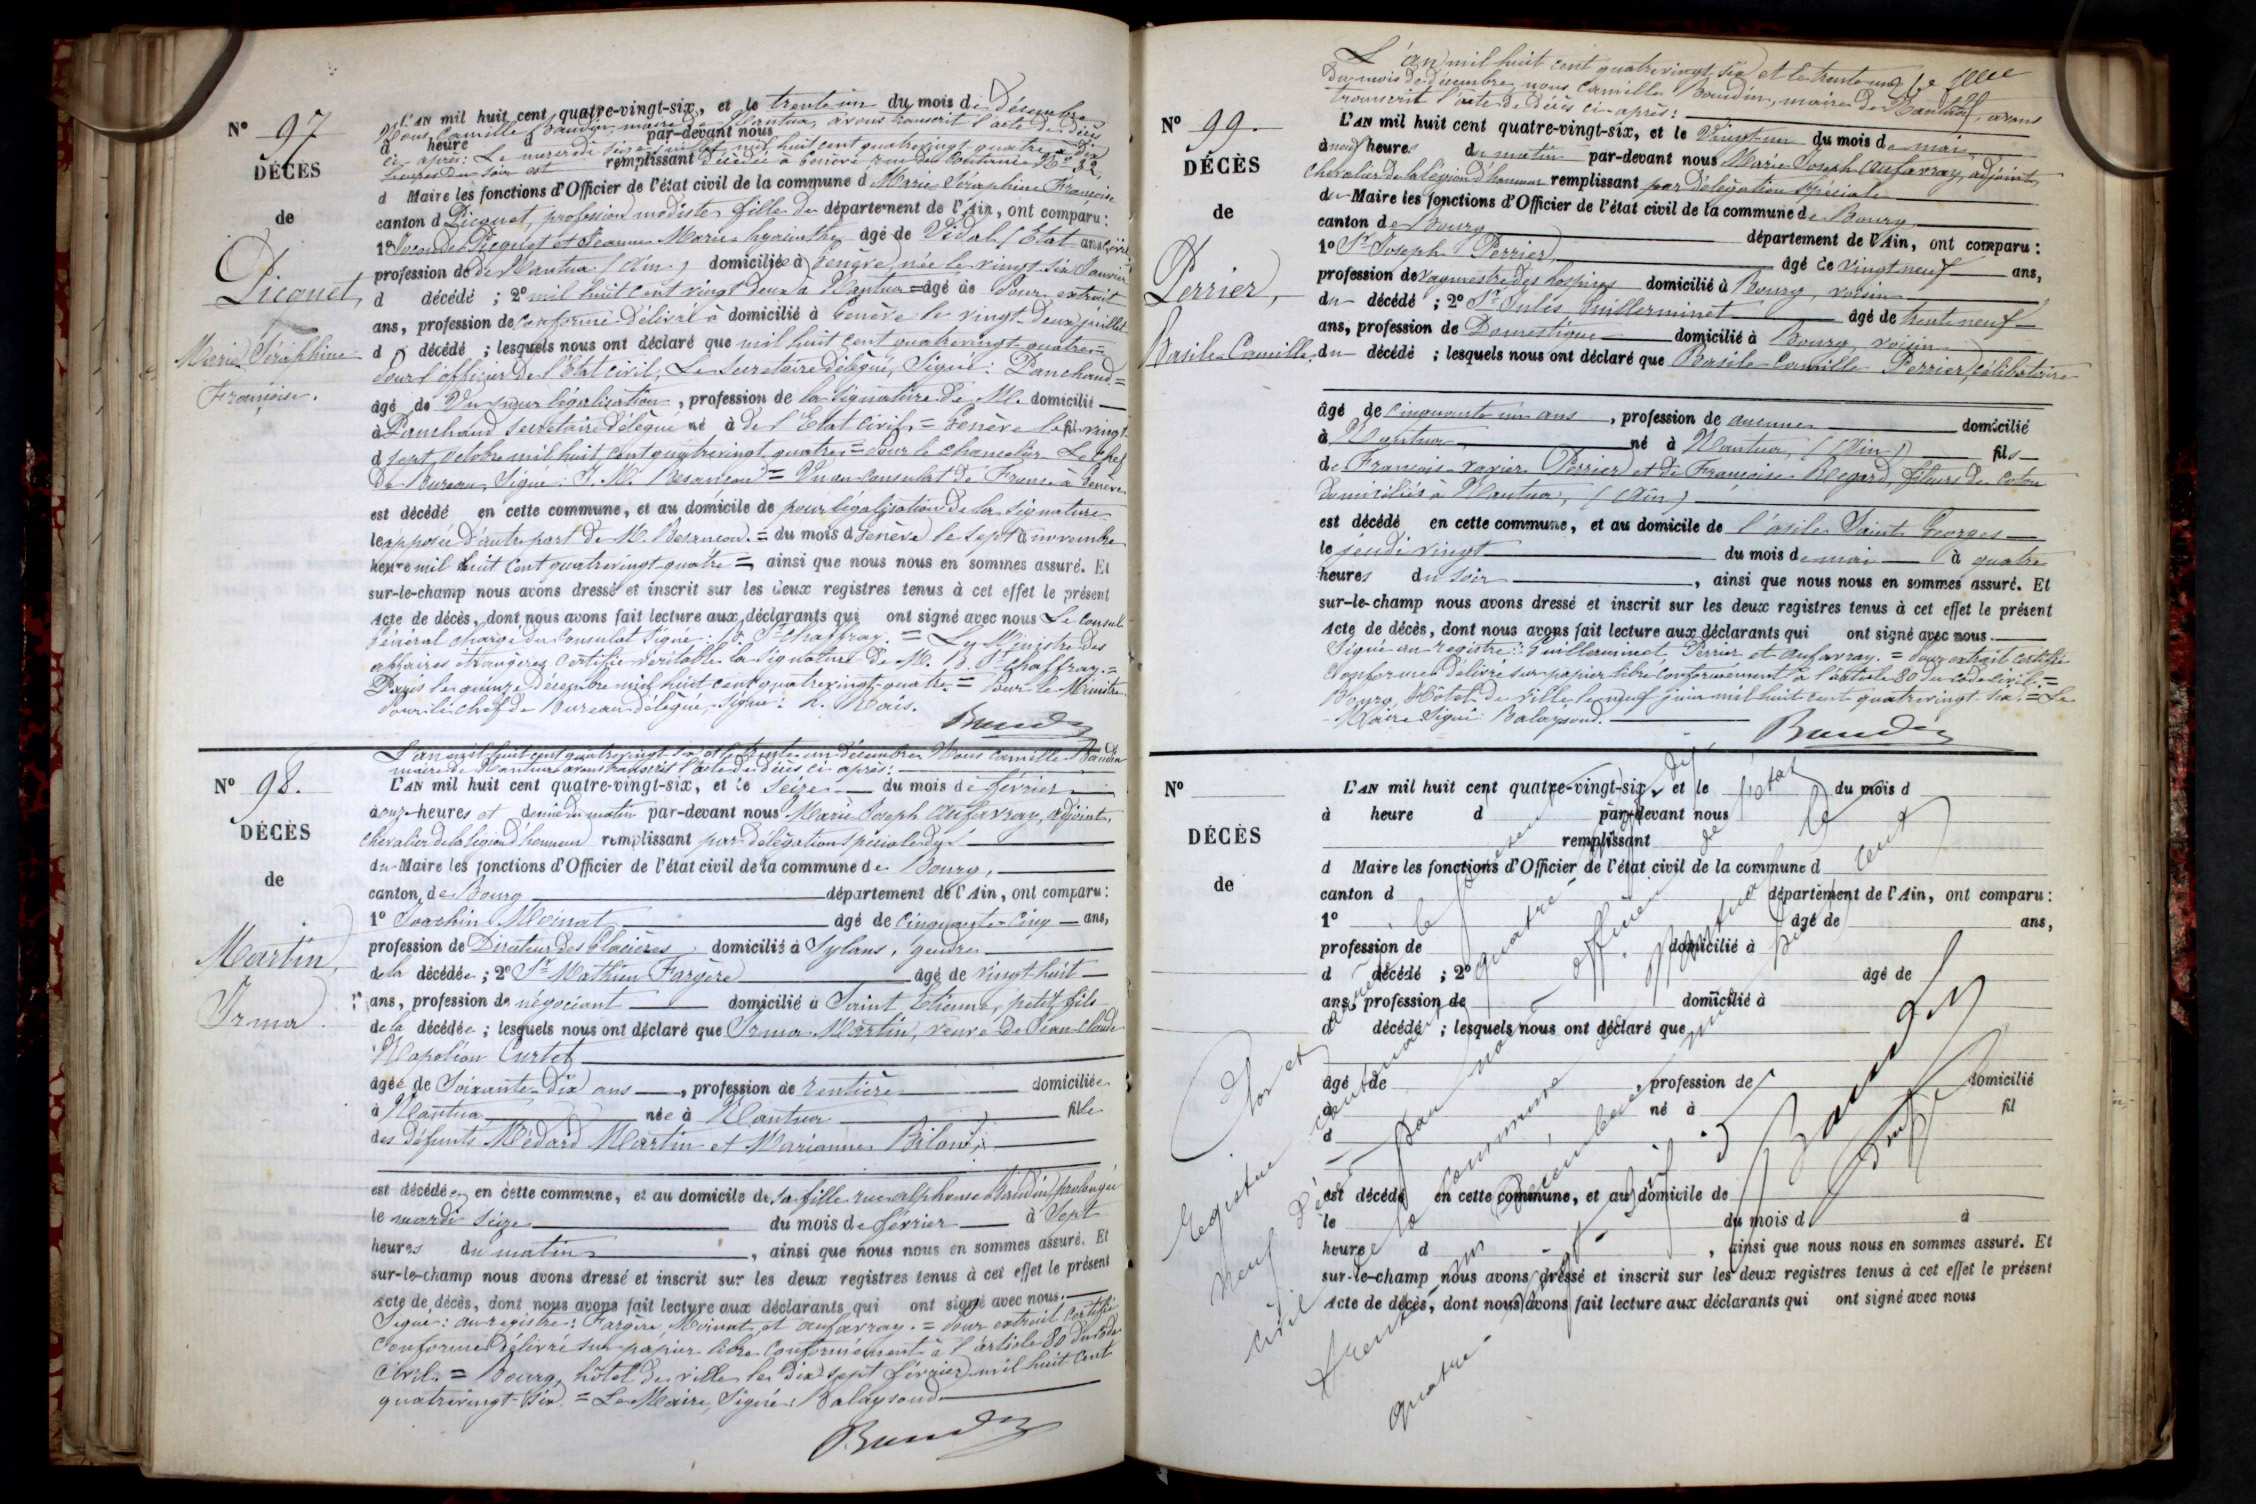 N° 97
DÉCÈS
de
Picquet,
Marie Séraphine
Françoise.
L'AN mil huit cent quatre-vingt-six, et le trente un du mois de Décembre
Nous Camille Baudin, maire de Mantua, avons transcrit l'acte de décès
à heure d par-devant nous
ci après: Le mercredi seize Juillet mil huit cent quatrevingt quatre à dix
heures du soir est remplissant décédée à Genève rue du Conterie N° 32,
d Maire les fonctions d'Officier de l'état civil de la commune d Marie Séraphine Françoise
canton d Picquet, profession modiste, fille de département de l'Ain, ont comparu:
1° de Picquet et Jeanne Marie hyacinthe âgé de Vidal (Etat ans
profession de de Mantua (Ain) domiciliée à Genève, née le vingt six Janvier
d décédé ; 2° mil huit cent vingt deux à Mantua = âgé de Pour extrait
ans, profession de conforme délivré à domicilié à Genève le vingt-deux juillet
d décédé ; lesquels nous ont déclaré que mil huit cent quatrevingt quatre =
Pour l'officier de l'Etat civil, Le Secretaire délégué, Signé: Panchaud =
âgé de Vu pour légalisation, profession de la Signature de M. domicilié
à Panchaud Secretaire délégué né à de l'Etat Civil = Genève le vingt-
d sept octobre mil huit cent quatrevingt quatre = Pour le Chancelier Le Chef
de Bureau, Signé: J. M. Besancon = Vu au Consulat de France à Genève
est décédé en cette commune, et au domicile de pour légalisation de la Signature
le apposée d'autre part de M. Besancon. = du mois d Genève le sept à novembre
heure mil huit cent quatrevingt-quatre =, ainsi que nous nous en sommes assuré. Et
sur-le-champ nous avons dressé et inscrit sur les deux registres tenus à cet effet le présent
Acte de décès, dont nous avons fait lecture aux déclarants qui ont signé avec nous Le Consul
Général chargé du Consulat Signé: St Chaffray. = Le Ministre des
affaires étrangères certifie véritable la Signature de M. St Chaffray. =
Paris le quinze Décembre mil huit cent quatrevingt-quatre. = Pour le Ministre
Pour le Chef de Bureau délégué, Signé: Mais.
Baudin
N° 98.
DÉCÈS
de
Martin,
Irma
L'an mil huit cent quatrevingt-six et le trente un décembre Nous Camille Baudin
maire de Mantua avons transcrit l'acte de décès ci après:
L'AN mil huit cent quatre-vingt-six, et le Seize du mois de février
à onze heures et demie du matin par-devant nous Marie Joseph Aufavray, adjoint,
Chevalier de la légion d'honneur remplissant par délégation spéciale
du Maire les fonctions d'Officier de l'état civil de la commune de Bourg,
canton de Bourg département de l'Ain, ont comparu:
1° Joachin Moinat âgé de Cinquante-Cinq ans,
profession de Directeur des Glacières domicilié à Sylans, gendre
de la décédée ; 2° Sr Mathieu Fargère âgé de vingt huit
ans, profession de négociant domicilié à Saint Etienne, petit fils
de la décédée ; lesquels nous ont déclaré que Irma Martin, veuve de Jean-Claude
Napoléon Curtet
âgée de Soixante-Dix ans, profession de rentière domiciliée
à Mantua née à Mantua fille
des défunts Médard Martin et Marianne Bilow
est décédée en cette commune, et au domicile de sa fille rue alphonse Baudin prolongée
le mardi seize du mois de février à Sept
heures du matin, ainsi que nous nous en sommes assuré. Et
sur-le-champ nous avons dressé et inscrit sur les deux registres tenus à cet effet le présent
Acte de décès, dont nous avons fait lecture aux déclarants qui ont signé avec nous.
Signé: au registre: Fargère, Moinat et Aufavray. = Pour extrait certifié
Conforme délivré sur papier libre conformément à l'article 80 du Code
Civil. = Bourg, hôtel de ville le dix sept février mil huit cent
quatrevingt-Six = Le Maire, Signé: Balaysond
Baudin
L'an mil huit cent quatrevingt six et le trente un
du mois de décembre nous Camille Baudin, maire de Mantua, avons
transcrit l'acte de décès ci-après:
N° 99.
DÉCÈS
de
Perrier,
Basile Camille
L'AN mil huit cent quatre-vingt-six, et le Vingt un du mois de mai
à neuf heures du matin par-devant nous Marie Joseph Aufavray, adjoint,
chevalier de la légion d'honneur remplissant par délégation spéciale
du Maire les fonctions d'Officier de l'état civil de la commune de Bourg
canton de Bourg département de l'Ain, ont comparu:
1° Sr Joseph Perrier âgé de vingt neuf ans,
profession de vaguemestre des hospices domicilié à Bourg, voisin
du décédé ; 2° Sr Jules Guillerminet âgé de trente neuf
ans, profession de Domestique domicilié à Bourg, voisin
du décédé ; lesquels nous ont déclaré que Basile Camille Perrier, célibataire
âgé de cinquante un ans, profession de aucune domicilié
à Mantua né à Mantua, (Ain) fils
de François-Xavier Perrier et de Françoise Regard, fileurs de coton
domiciliés à Mantua, (Ain)
est décédé en cette commune, et au domicile de l'asile Saint Georges
le jeudi vingt du mois de mai à quatre
heures du soir, ainsi que nous nous en sommes assuré. Et
sur-le-champ nous avons dressé et inscrit sur les deux registres tenus à cet effet le présent
Acte de décès, dont nous avons fait lecture aux déclarants qui ont signé avec nous.
Signé au registre: Guillerminet, Perrier et Aufavray. = Pour extrait certifié
conforme délivré sur papier libre conformément à l'article 80 du code civil. =
Bourg, Hôtel de Ville le neuf juin mil huit cent quatrevingt six. = Le
Maire Signé: Balaysond.
Baudin
N°
DÉCÈS
de
L'AN mil huit cent quatre-vingt-six, et le du mois d
à heure d par-devant nous
remplissant
d Maire les fonctions d'Officier de l'état civil de la commune d
canton d département de l'Ain, ont comparu:
1° âgé de ans,
profession de domicilié à
d décédé ; 2° âgé de
ans, profession de domicilié à
d décédé ; lesquels nous ont déclaré que
âgé de , profession de domicilié
à né à fil
d
est décédé en cette commune, et au domicile de
le du mois d à
heure d , ainsi que nous nous en sommes assuré. Et
sur-le-champ nous avons dressé et inscrit sur les deux registres tenus à cet effet le présent
Acte de décès, dont nous avons fait lecture aux déclarants qui ont signé avec nous
Clos et arrêté le présent
registre contenant quatre
Décès par nous officier de l'état
civil de la commune de Mantua le
trente un Décembre mil huit cent
quatre vingt six
Baudin